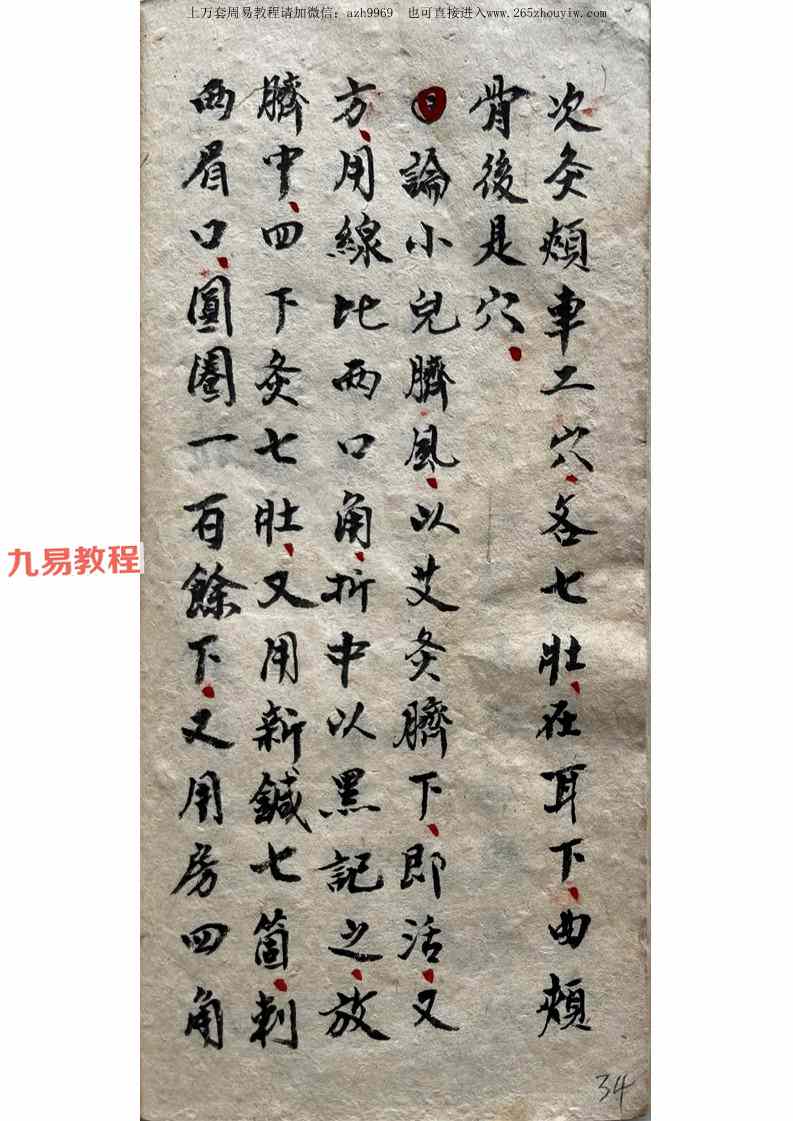 上万套周易教程请加微信：azh9969 也可直接进入www.265zhouyiw.com
次灸頰車二穴、各七壯、在耳下、曲頰
骨後是穴、
論小兒臍風、以艾灸臍下、即活、又
方、用線比兩口角、折中以墨記之、放
臍中、四下灸七壯、又用新鍼七箇、刺
兩眉口、圓圈一百餘下、又用房四角
九易教程
34